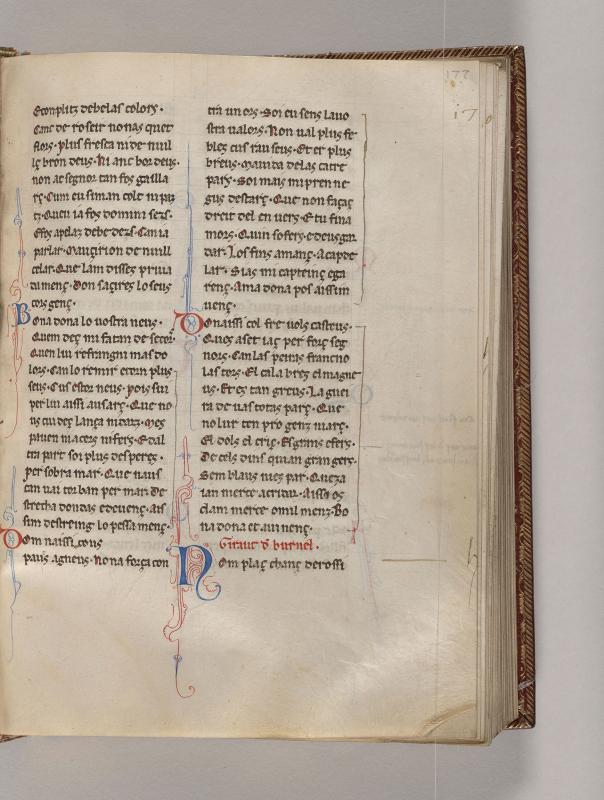 Econplitz debelas colors.
Canc de roseir no nas quet
flors. plus fresca ni de nuil
lç bron deus. Ni anc bordeus.
non ac segnor tan fos gailla
rç. Cum eu si man colt ni paz
tz. Queu ia fos domini sers.
Efos apelaz debeders. Can ia
parlar. Mauçirion de nuill
celar. Que lam disses priua
damenç. Don saçires lo seus
cors genç.
Bona dona lo uostra neus.
Quem deç mi fatan de secor
Quen lui refrangui mas do
lors. Can lo remir e coin plus
seus. Cus estor neus. pois sui
per lui aissi ausarç. Que no
us cuideç lança ni darz. Mes
pauen ni acers ni fers. Edal
tra part soi plus despereç.
per sobra mar. Que naus
can uai torban per mar. De
strecha dondas edeuenç. Ais
sim destreing lo pessamenç.
Dom naissi cous
pauis agneus. No na força con
tra un ors. Soi eu sens lauo
stra ualors. Non ual plus fe
bles cus rauseus. Et er plus
breus. Mauida delas catre
parç. Soi mais mi pren ne
gus destarç. Que non façaç
dreit del en uers. E tu fina
mors. Quim sofers. e deus gar
dar. Los fins amanç. Acapde
lar. Sias mi capteinç ega
renç. Ama dona pos aissim
uenç.
Donaissi col fre uols casteus.
Ques aset iaç per forç seg
nors. Can las peiras franc no
las tors. El cala bres el magne
us. Et es tan greus. La guei
ra de uas totas parç. Que
no lur ten pro genz niarç.
El dols el criç. Es grans e fers.
De cels dins qui an gran gers.
Sem blaus ni es par. Queza
ian merce acridar. Aissi os
clam merce omil menz. Bo
na dona et auinenç.
Giraut d burnel.
Nom plaç chanç de rossi
177
17